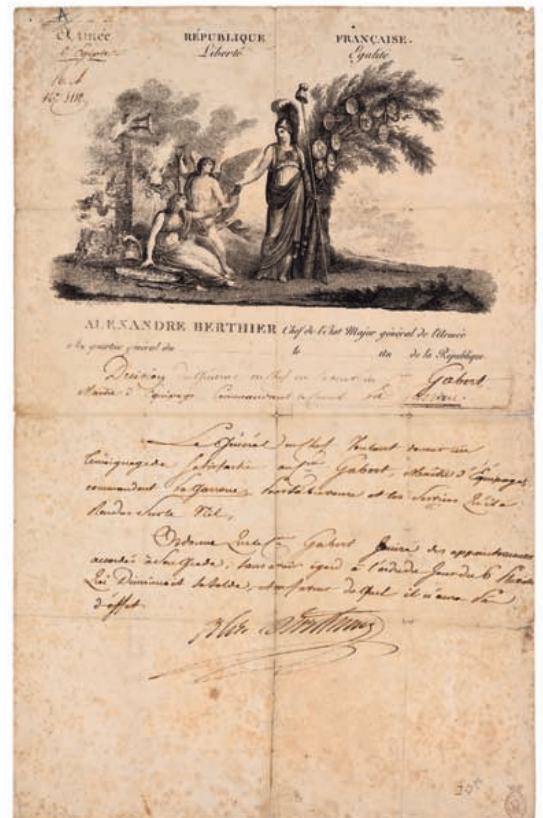 Armée RÉPUBLIQUE FRANÇAISE.
d'Égypte Liberté Égalité
ALEXANDRE BERTHIER Chef de l'état Major général de l'Armée
Au quartier général du le an de la République
Décision du Général en Chef en faveur du Gabert,
Maître d'Équipage Commandant
Le Général en Chef Voulant donner un
témoignage de Satisfaction au Gabert, Maître d'Équipage
commandant et les Services qu'il a
Rendus Sur le Nil,
Ordonne que le Gabert Jouira des appointements
accordés à Son Grade, Sans avoir égard à l'ordre du Jour du 6
Qui Diminuent la Solde, et en faveur duquel il n'aura
d'effet.
Alex Berthier